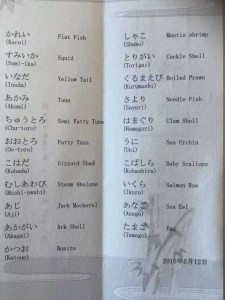 かれい Flat Fish
(Karei)
すみいか Squid
(Sumi-ika)
いなだ Yellow Tail
(Inada)
あかみ Tuna
(Akami)
ちゅうとろ Semi Fatty Tuna
(Chu-toro)
おおとろ Fatty Tuna
(Oo-toro)
こはだ Gizzard Shad
(Kohada)
むしあわび Steam Abalone
(Mushi-awabi)
あじ Jack Mackerel
(Aji)
あかがい Ark Shell
(Akagai)
かつお Bonito
(Katsuo)
しゃこ Mantis shrimp
(Shako)
とりがい Cockle Shell
(Torigai)
くるまえび Boiled Prawn
(Kurumaebi)
さより Needle Fish
(Sayori)
はまぐり Clam Shell
(Hamaguri)
うに Sea Urchin
(Uni)
こばしら Baby Scallops
(Kobashira)
いくら Salmon Roe
(Ikura)
あなご Sea Eel
(Anago)
たまご Egg
(Tamago)